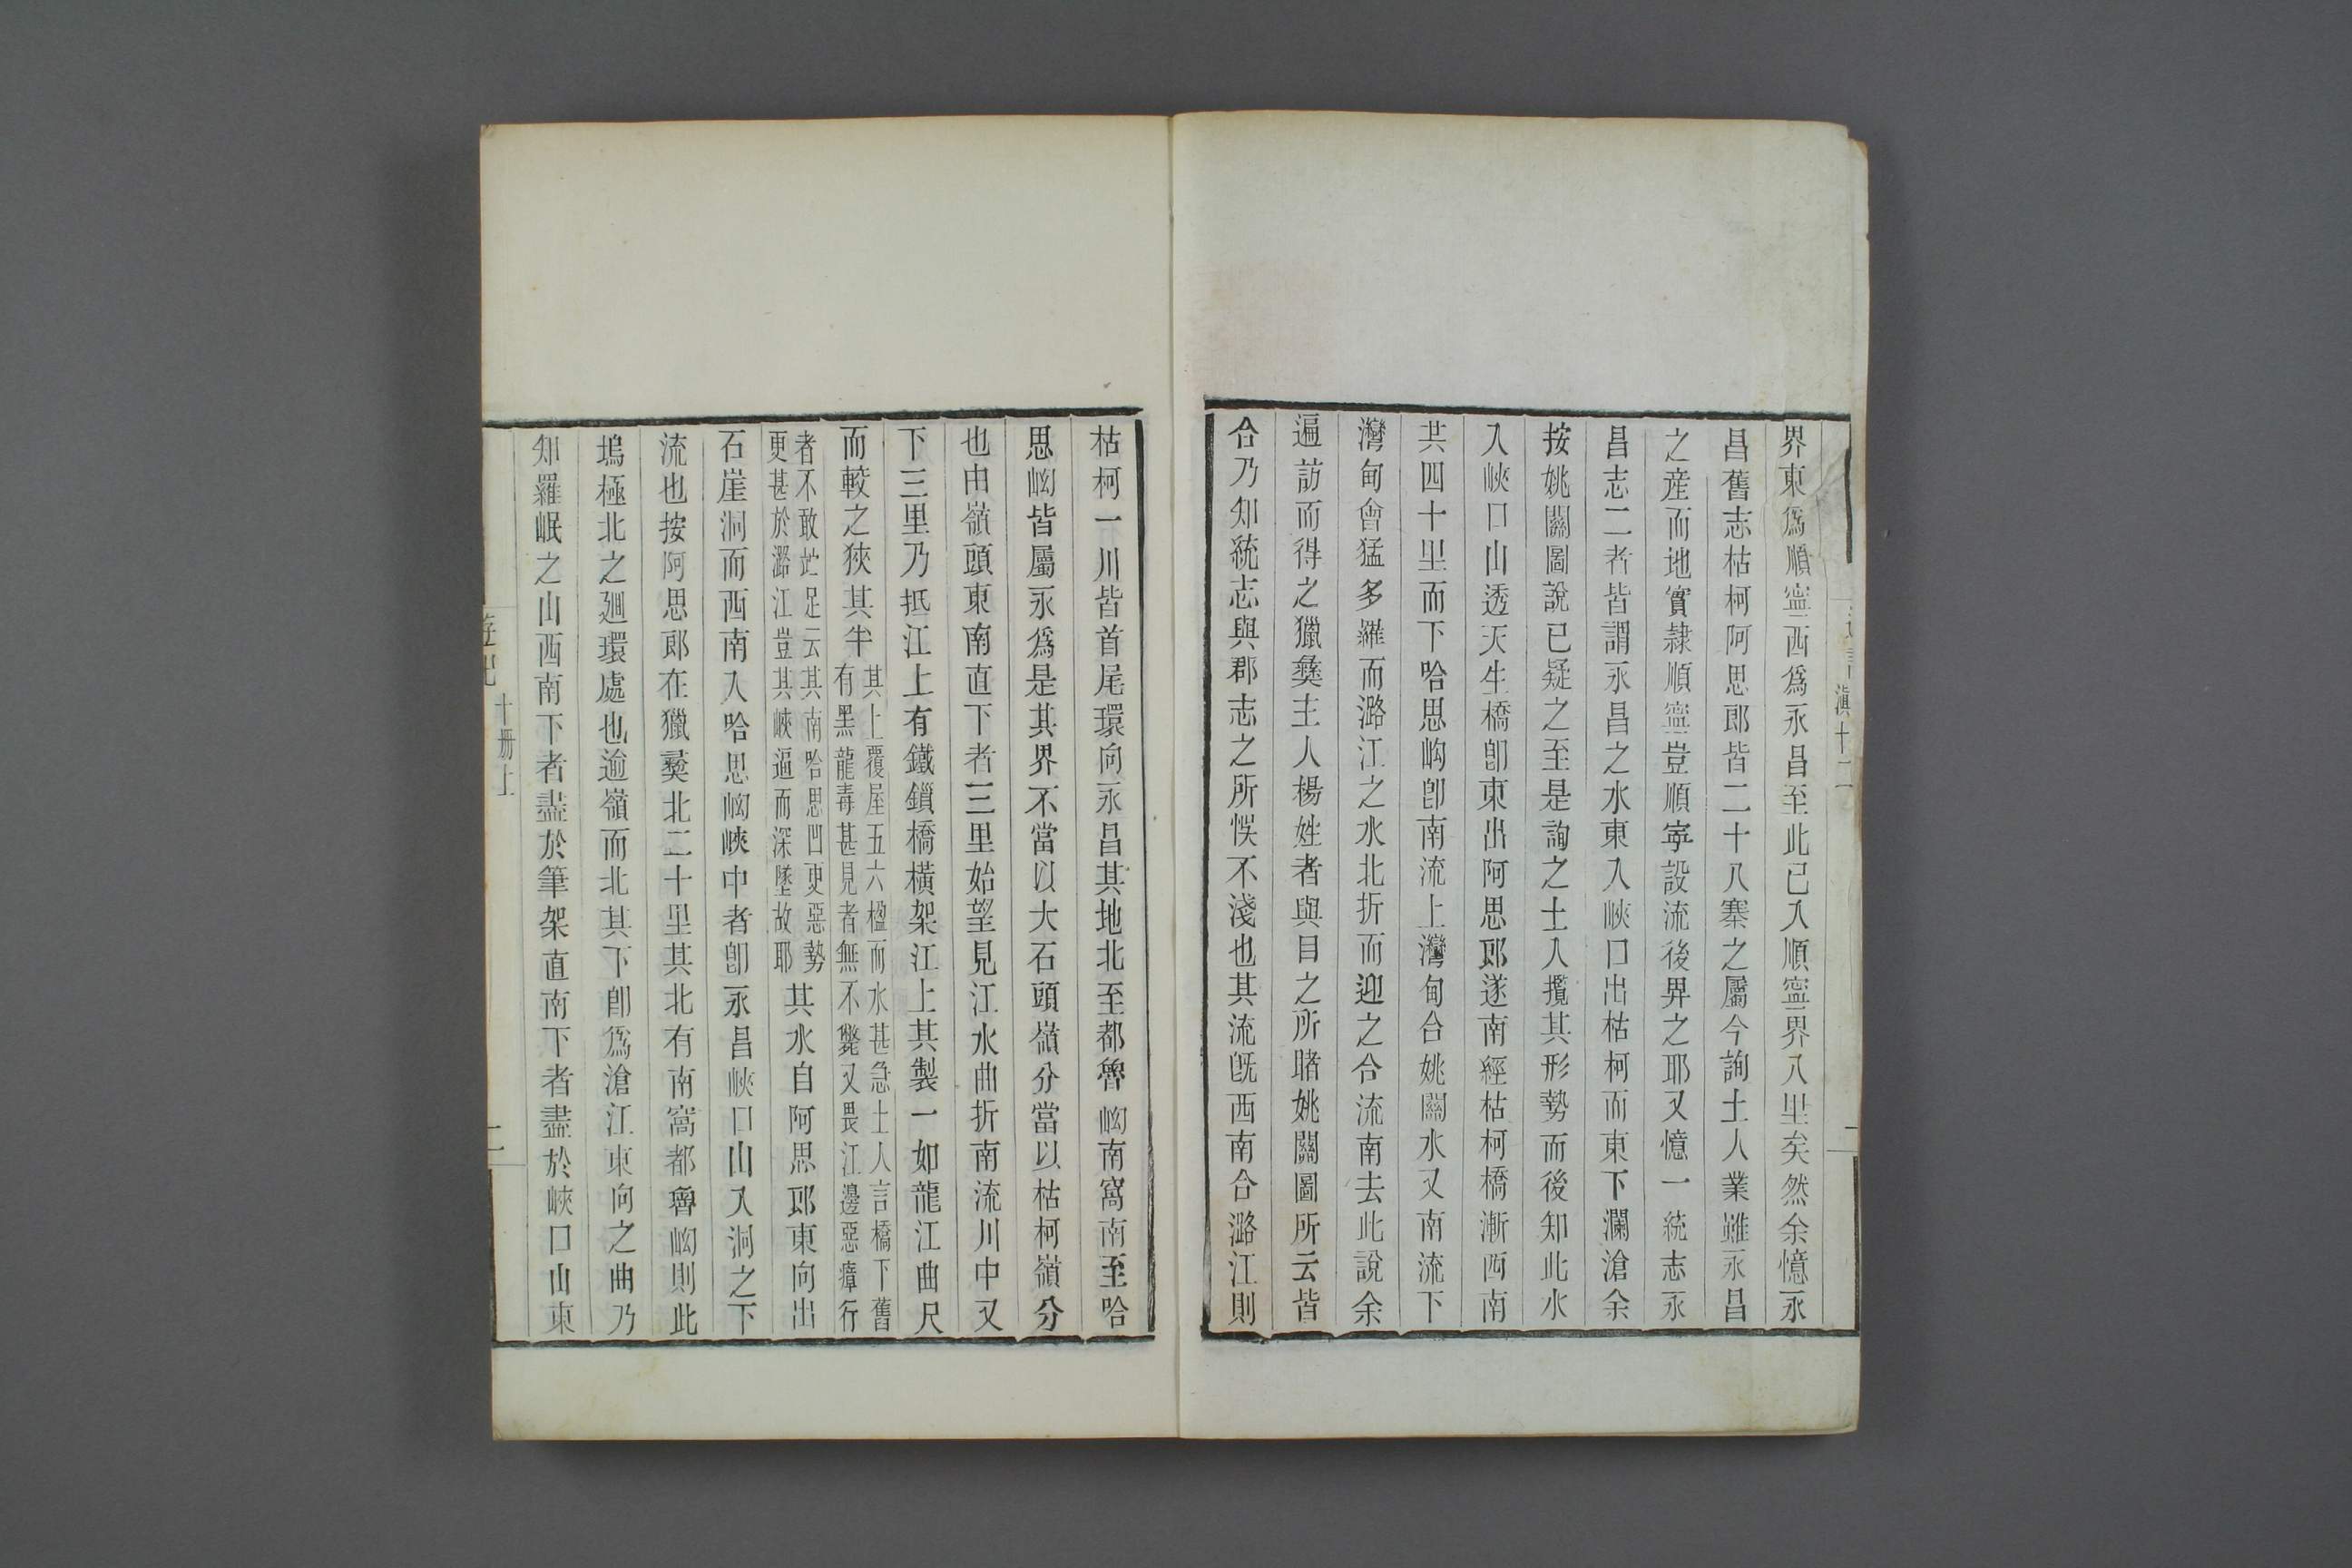 滇十二
界東爲順寧西爲永昌至此已入順寧界八里矣然余憶永
昌舊志枯柯阿思郎皆二十八寨之屬今詢土人業雖永昌
之產而地實隸順寧豈順寧設流後畀之耶又憶一統志永
昌志二者皆謂永昌之水東入峽口出枯柯而東下瀾滄余
按姚關圖說已疑之至是詢之土人攬其形勢而後知此水
入峽口山透天生橋卽東出阿思郎遂南經枯柯橋漸西南
共四十里而下哈思㘭卽南流上灣甸合姚關水又南流下
灣甸會猛多羅而潞江之水北折而迎之合流南去此說余
遍訪而得之獵彝主人楊姓者與目之所睹姚關圖所云皆
合乃知統志與郡志之所悞不淺也其流旣西南合潞江則
枯柯一川皆首尾環向永昌其地北至都魯㘭南窩南至哈
思㘭皆屬永爲是其界不當以大石頭嶺分當以枯柯嶺分
也由嶺頭東南直下者三里始望見江水曲折南流川中又
下三里乃抵江上有鐵鎖橋橫架江上其製一如龍江曲尺
而較之狹其半其上覆屋五六楹而水甚急土人言橋下舊
有黑龍毒甚見者無不斃又畏江邊惡瘴行
者不敢竚足云其南哈思凹更惡勢
更甚於潞江豈其峽逼而深墜故耶其水自阿思郎東向出
石崖洞而西南入哈思㘭峽中者卽永昌峽口山入洞之下
流也按阿思郎在獵彝北二十里其北有南窩都魯㘭則此
塢極北之𢌞環處也逾嶺而北其下卽爲滄江東向之曲乃
知羅岷之山西南下者盡於筆架直南下者盡於峽口山東
遊記 十冊上 二